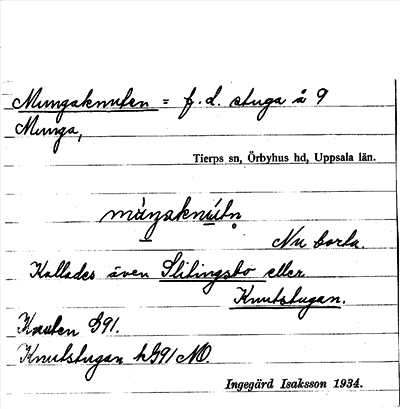 Mungaknuten = f.d. stuga å 9
Munga,
Tierps sn, Örbyhus hd, Uppsala län.
Nu borta.
Kallades även Slitingsbo eller
Knutstugan.
Knuten G91.
Knutstugan hG91 NO.
Ingegärd Isaksson 1934.